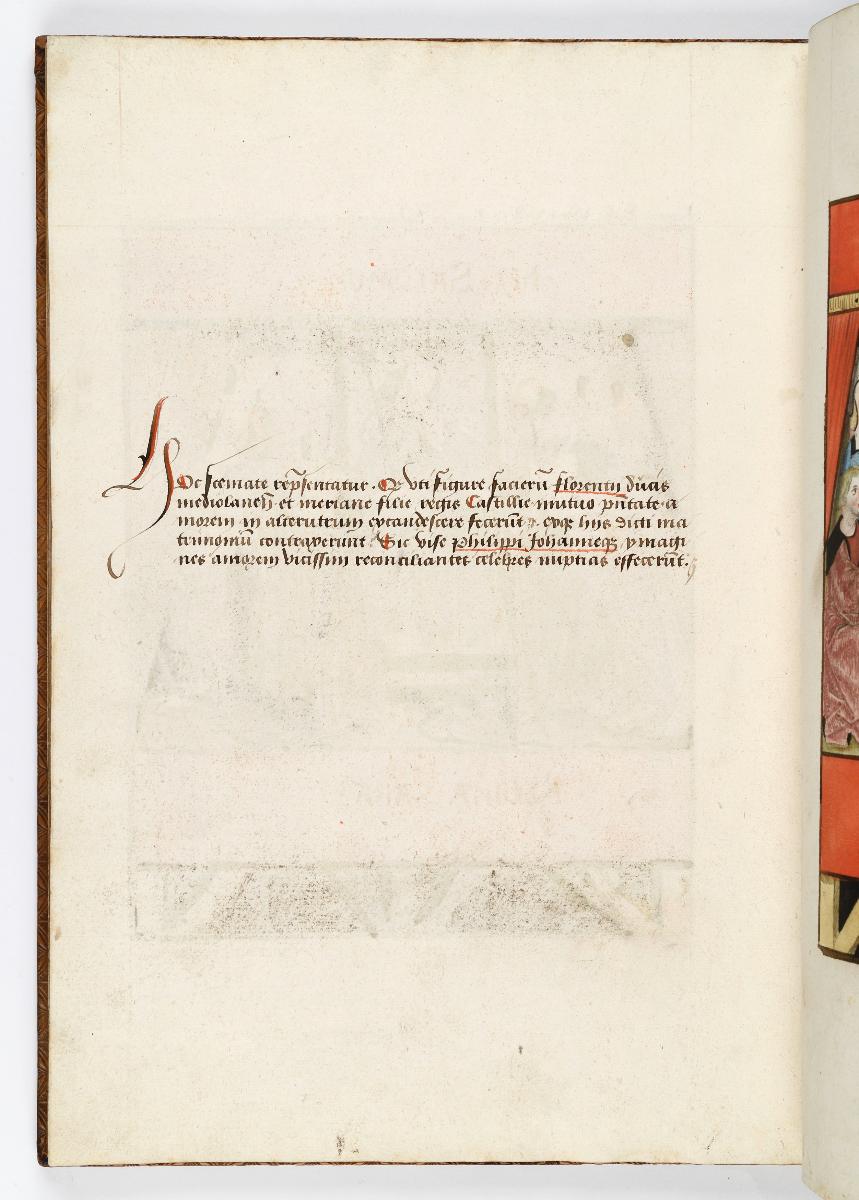 HOc scemate rep̄sentatur. Qꝛ vti figure facierū florentij ducis
mediolaneñ et meriane filie regis Castillie mutuo pñtate a
morem in alterutrum excandescere fecerūt eoqꝫ hijs dicti ma
trimoniū contraxerunt Sic vise philippi Johanneqꝫ ymagi
nes amorem vicissim reconciliantes celebres nuptias effecerūt.